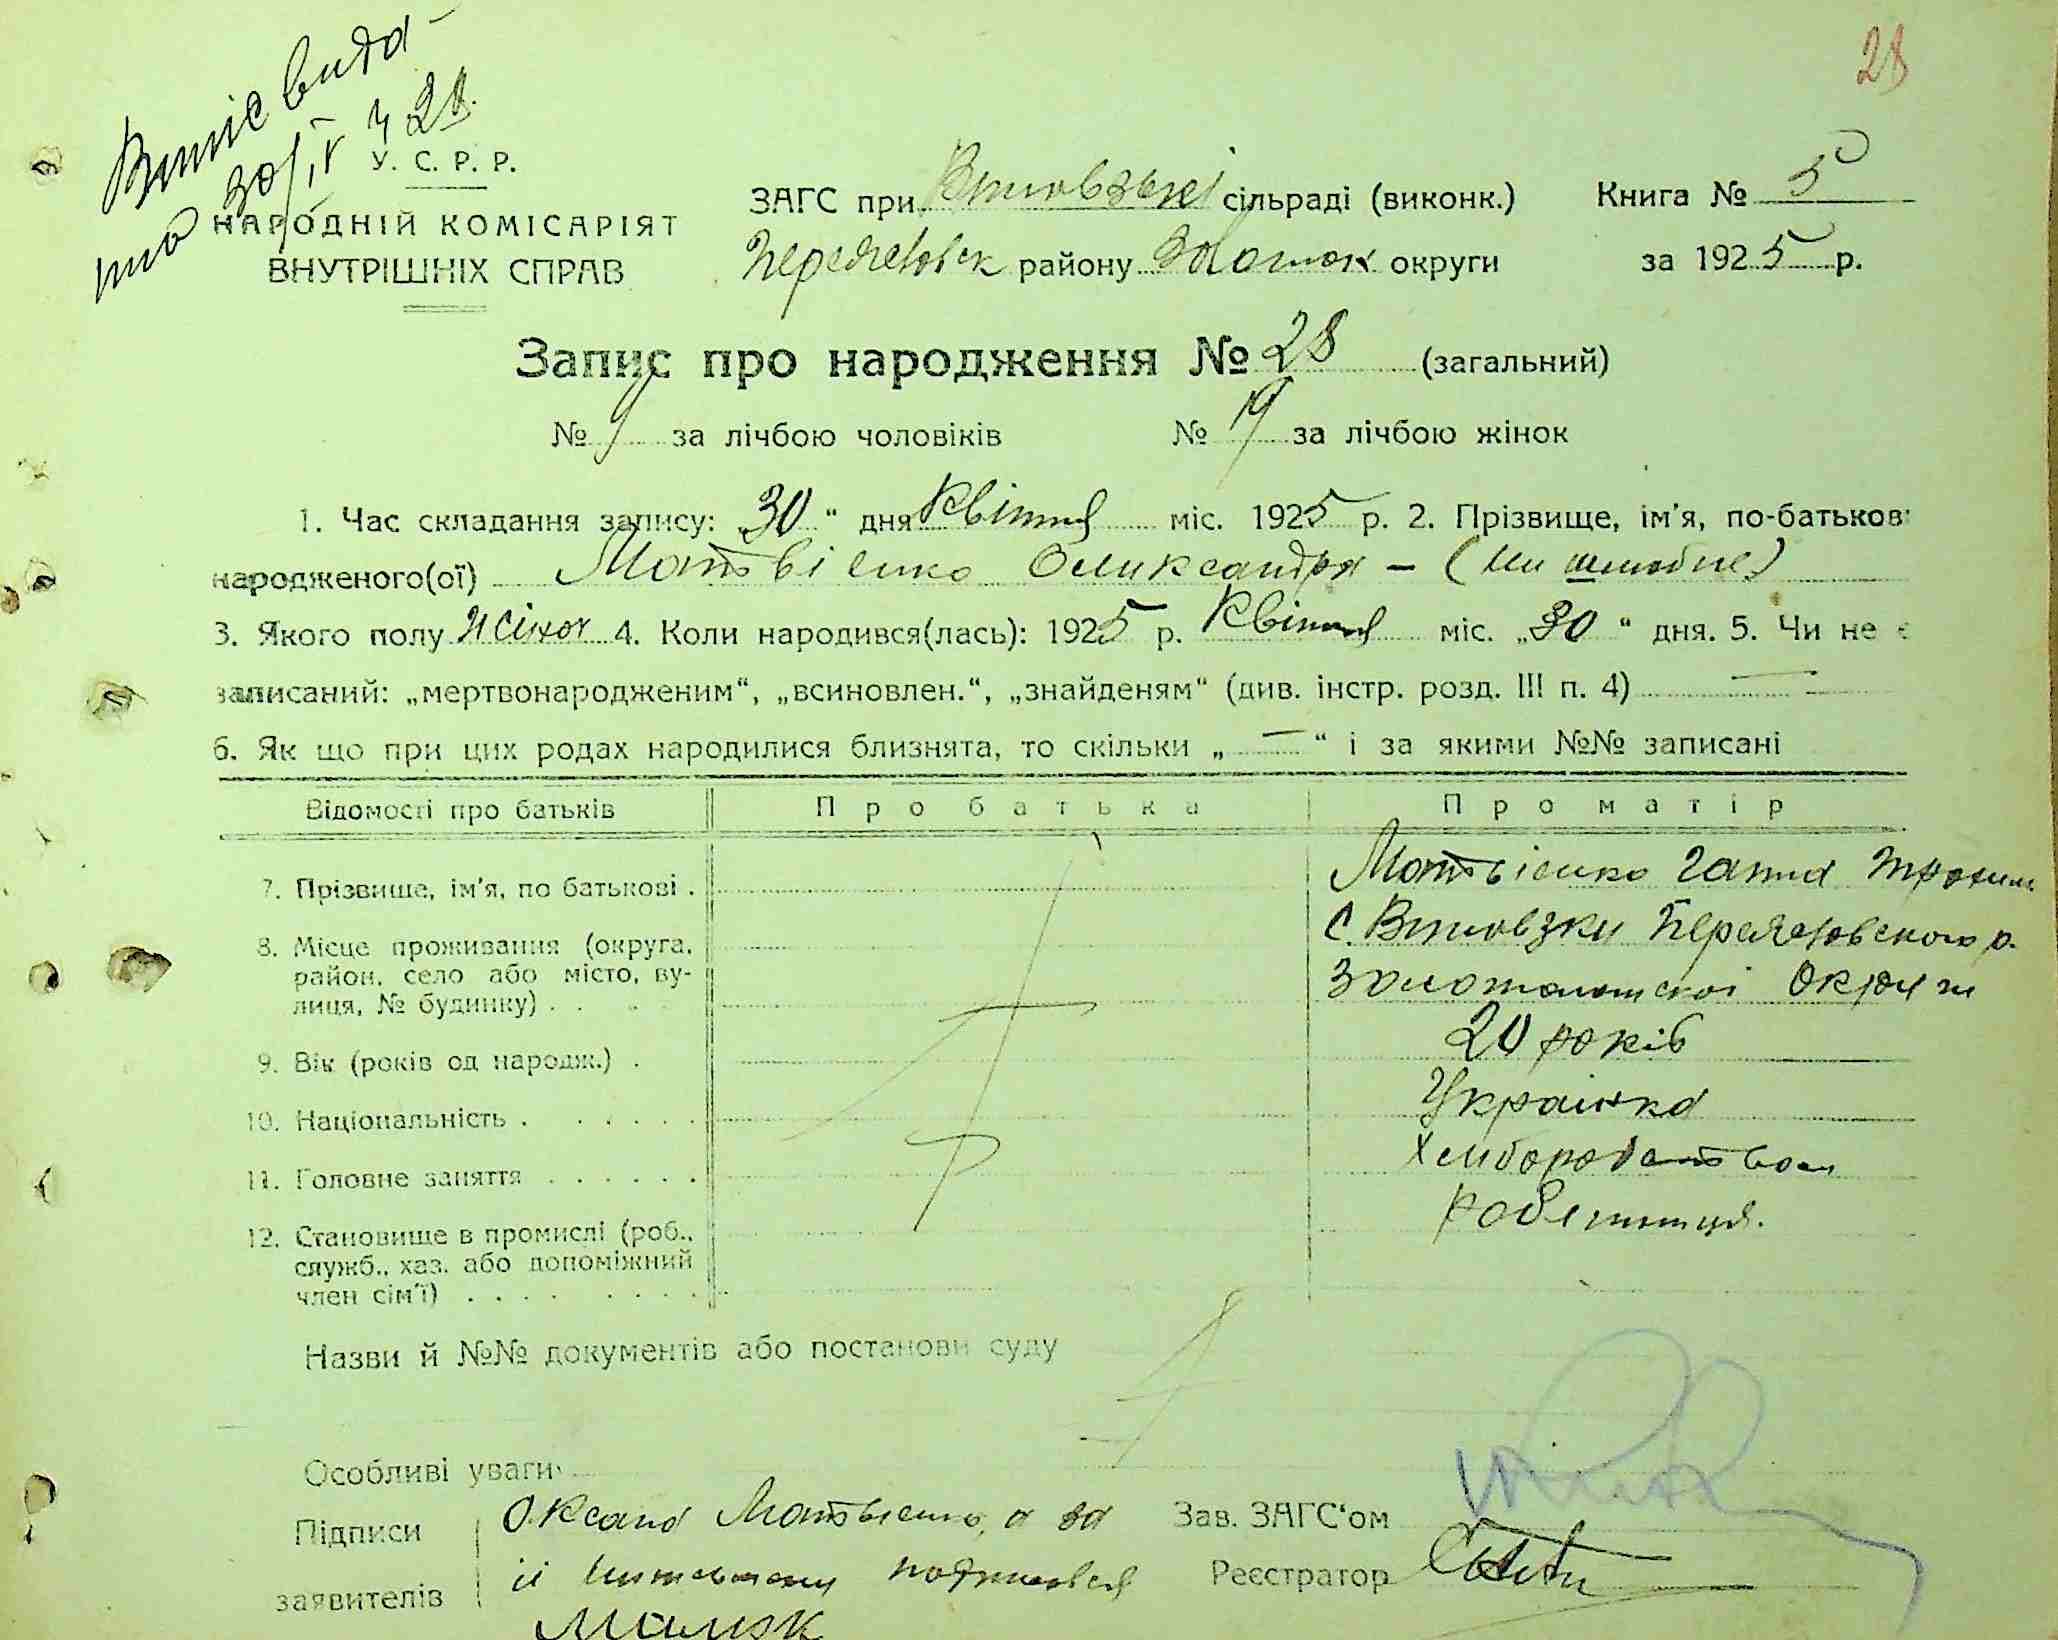 28
Витіс вида-
но 30/IV 29.
У. С. Р. Р.
НАРОДНІЙ КОМІСАРІЯТ
ВНУТРІШНІХ СПРАВ
ЗАГС при сільраді (виконк.) Книга № 5
району Золотон округи за 1925 р.
Запис про народження № 28 (загальний)
№ 9 за лічбою чоловіків № 19 за лічбою жінок
1. Час складання запису: „30“ дня Квітня міс. 1925 р. 2. Прізвище, ім'я, по-батьков
народженого(ої) Матвієнко Олександра – (
3. Якого полу жіноч 4. Коли народився(лась): 1925 р. Квітня міс. „30“ дня. 5. Чи не є
записаний: „мертвонародженим“, „всиновлен.“, „знайденям“ (див. інстр. розд. III п. 4) —
6. Як що при цих родах народилися близнята, то скільки „—“ і за якими №№ записані
Відомості про батьків Про батька Про матір
7. Прізвище, ім'я, по батькові . Матвієнко Ганна
8. Місце проживання (округа, район, село або місто, вулиця, № будинку) . . с.
Золотоношскоі Округи
9. Вік (років од народж.) . 20 років
10. Національність . . . . . . Украінка
11. Головне заняття . . . . . . Хліборобство
12. Становище в промислі (роб., служб., хаз. або допоміжний член сім'ї) . . . . . . . . робітниця.
Назви й №№ документів або постанови суду
Особливі уваги
Підписи заявителів Оксана Матвієнко, а за
її
Зав. ЗАГС'ом
Реєстратор